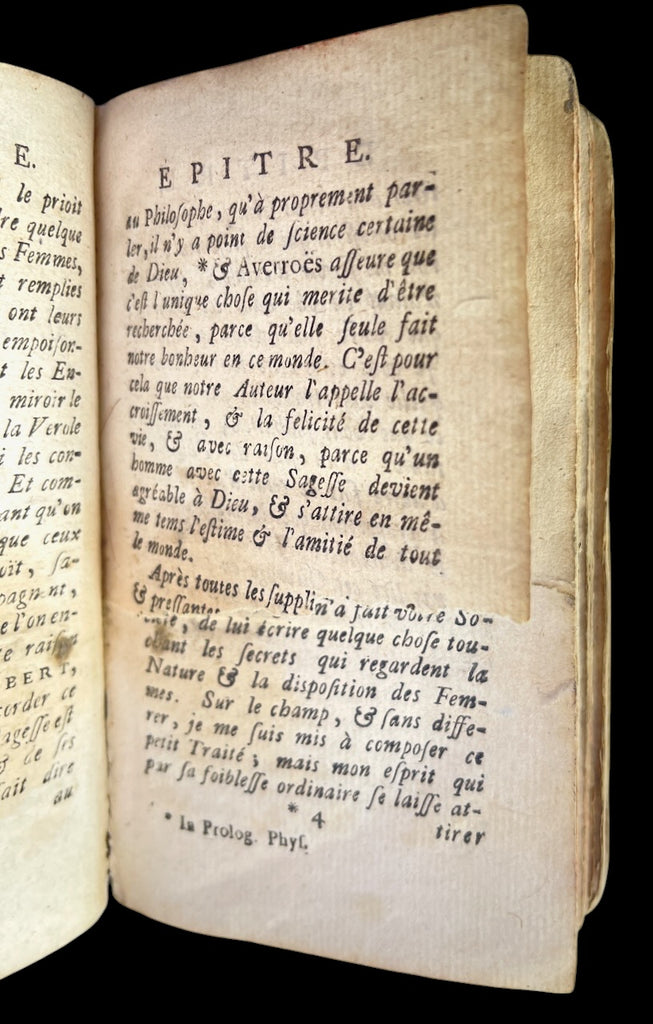 E.
le prioit
re quelque
s Femmes,
t remplies
ont leurs
empoiſon-
t les En-
miroir le
la Verole
i les con-
Et com-
ant qu'on
que ceux
oit, ſa-
pagnent,
e l'on en-
e raiſon
BERT,
corder ce
ageſſe eſt
& de ſes
ſait dire
au
ÉPITRE.
au Philoſophe, qu'à proprement par-
ler, il n'y a point de ſcience certaine
de Dieu, * & Averroës aſſeure que
c'eſt l'unique choſe qui merite d'être
recherchée, parce qu'elle ſeule fait
notre bonheur en ce monde. C'eſt pour
cela que notre Auteur l'appelle l'ac-
croiſſement, & la felicité de cette
vie, & avec raiſon, parce qu'un
homme avec cette Sageſſe devient
agréable à Dieu, & s'attire en mê-
me tems l'eſtime & l'amitié de tout
le monde.
Après toutes les ſuppli n'a fait votre So-
& preſſantes
de lui écrire quelque choſe tou-
chant les ſecrets qui regardent la
Nature & la diſpoſition des Fem-
mes. Sur le champ, & ſans diffe-
rer, je me ſuis mis à compoſer ce
petit Traité; mais mon eſprit qui
par ſa foibleſſe ordinaire ſe laiſſe at-
* 4
tirer
* In Prolog. Phyſ.